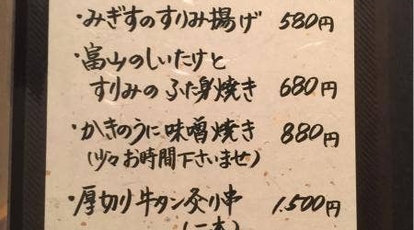 ・みぎすのすりみ揚げ 580円
・富山のしいたけと
すりみのふた身焼き 680円
・かきのうに味噌焼き 880円
(少々お時間下さいませ)
・厚切り牛タン炙り串 1.500円
(二本)